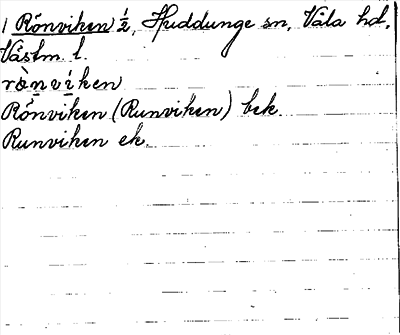 1 Rönviken ½, Huddunge sn, Våla hd,
Västm l.
rò̱nvíken
Rönviken (Runviken) bek.
Runviken ek.